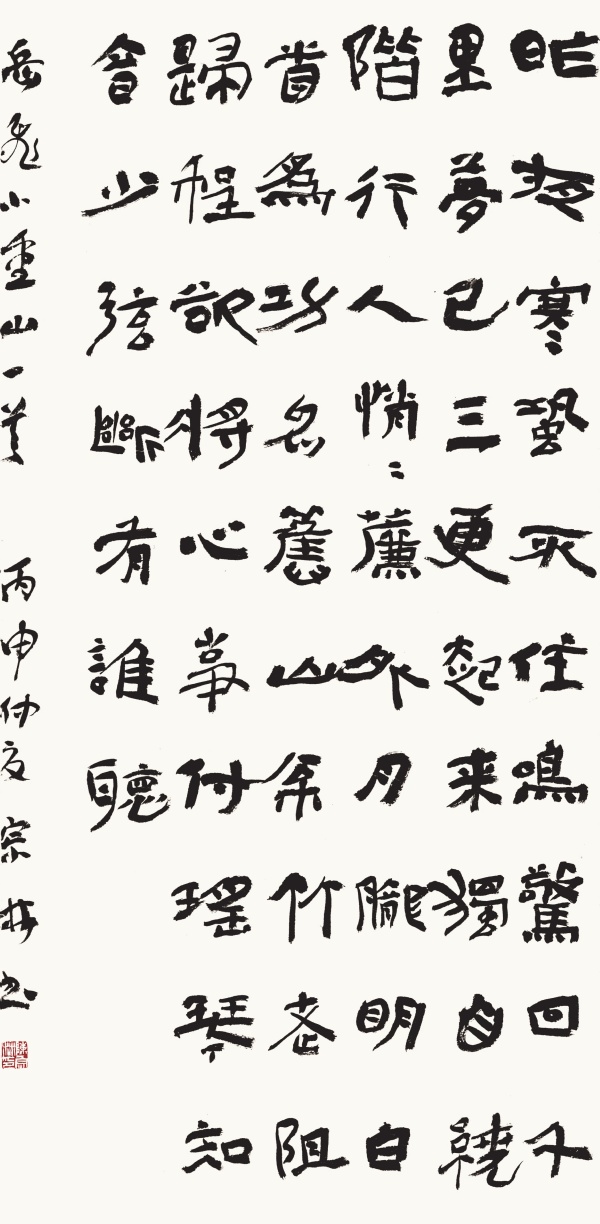 昨夜寒〻蛩不住鳴驚回千
里夢已三更起来獨自繞
階行人悄〻簾外月朧明白
首為功名舊山松竹老阻
歸程欲將心事付瑤琴知
音少弦斷有誰聽
岳飛小重山一首 丙申仲夏 宗 书